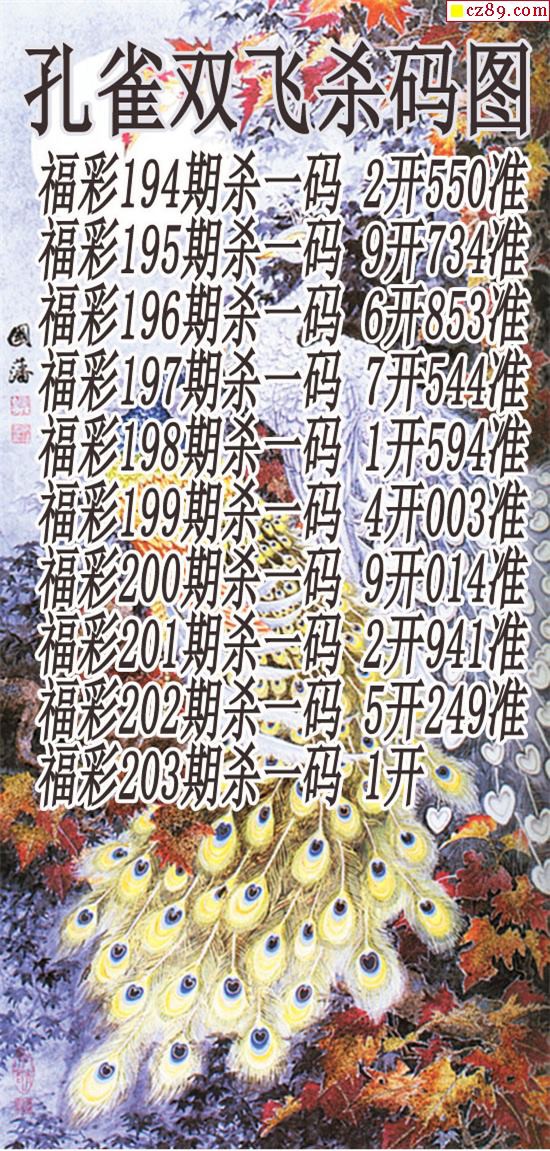 cz89.com
孔雀双飞杀码图
福彩194期杀一码 2开550准
福彩195期杀一码 9开734准
福彩196期杀一码 6开853准
福彩197期杀一码 7开544准
福彩198期杀一码 1开594准
福彩199期杀一码 4开003准
福彩200期杀一码 9开014准
福彩201期杀一码 2开941准
福彩202期杀一码 5开249准
福彩203期杀一码 1开
國藩